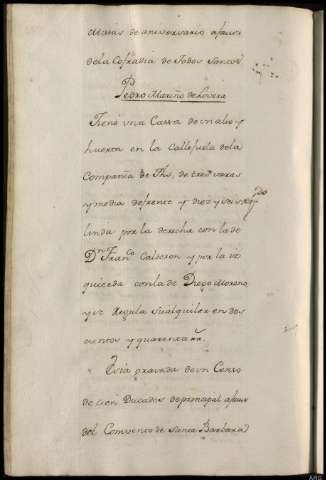 Misas de aniversario a favor
de la Cofradia de Todos Santos
Pedro Mariño de Lovera
Tiene una Cassa de malo y
huerta en la Callejuela de la
Compañia de Jhs, de tres varas
y media de frente y diez y seis
linda por la derecha con la de
Dn Franco Calderon y por la iz
quierda con la de Diego Moreno
y se Regula su alquiler en dos
cientos y quarenta rr.
Está gravada de un Censo
de cien Ducados de principal a favor
del Convento de Santa Barbara